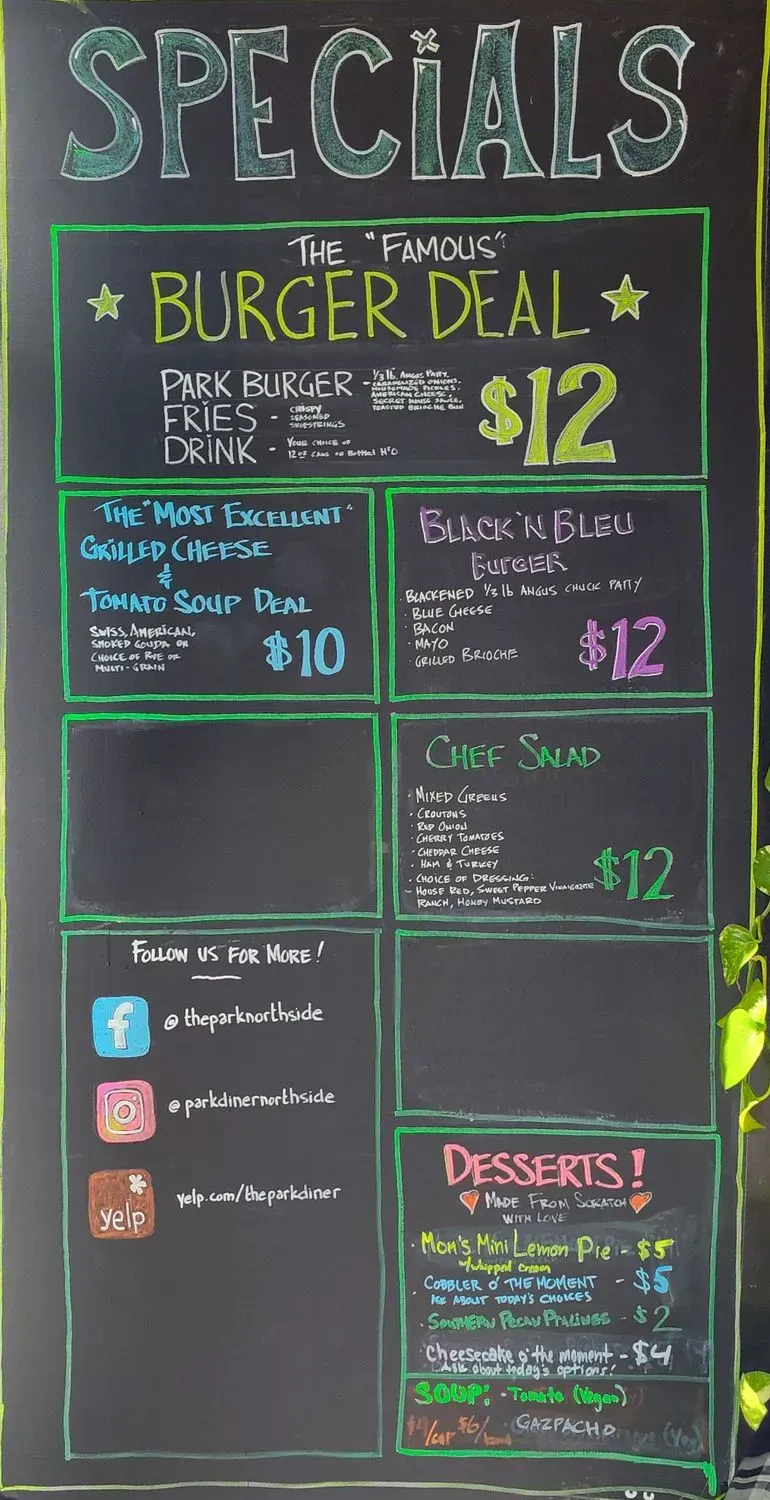 SPECiALS
THE "FAMOUS"
BURGER DEAL
PARK BURGER - 1/3 lb. ANGUS PATTY,
CARAMELIZED ONIONS,
HOUSEMADE PICKLES,
AMERICAN CHEESE,
SECRET HOUSE SAUCE,
TOASTED BRIOCHE BUN
FRIES - CRISPY
SEASONED
SHOESTRINGS
DRINK - YOUR CHOICE OF
12 OZ CANS OR BOTTLED H²O
$12
THE "MOST EXCELLENT"
GRILLED CHEESE
&
TOMATO SOUP DEAL
SWISS, AMERICAN,
SMOKED GOUDA ON
CHOICE OF RYE OR
MULTI-GRAIN
$10
BLACK 'N BLEU
BURGER
BLACKENED 1/3 lb ANGUS CHUCK PATTY
· BLUE CHEESE
· BACON
· MAYO
· GRILLED BRIOCHE
$12
CHEF SALAD
· MIXED GREENS
· CROUTONS
· RED ONION
· CHERRY TOMATOES
· CHEDDAR CHEESE
· HAM & TURKEY
· CHOICE OF DRESSING:
- HOUSE RED, SWEET PEPPER VINAIGRETTE
RANCH, HONEY MUSTARD
$12
FOLLOW US FOR MORE!
f @theparknorthside
@parkdinernorthside
yelp yelp.com/theparkdiner
DESSERTS!
MADE FROM SCRATCH
WITH LOVE
· Mom's Mini Lemon Pie - $5
w/whipped cream
· COBBLER O' THE MOMENT - $5
ASK ABOUT TODAY'S CHOICES
· SOUTHERN PECAN PRALINES - $2
· Cheesecake o' the moment - $4
Ask about today's options!
SOUP: · Tomato (Vegan)
/CUP $6/ GAZPACHO